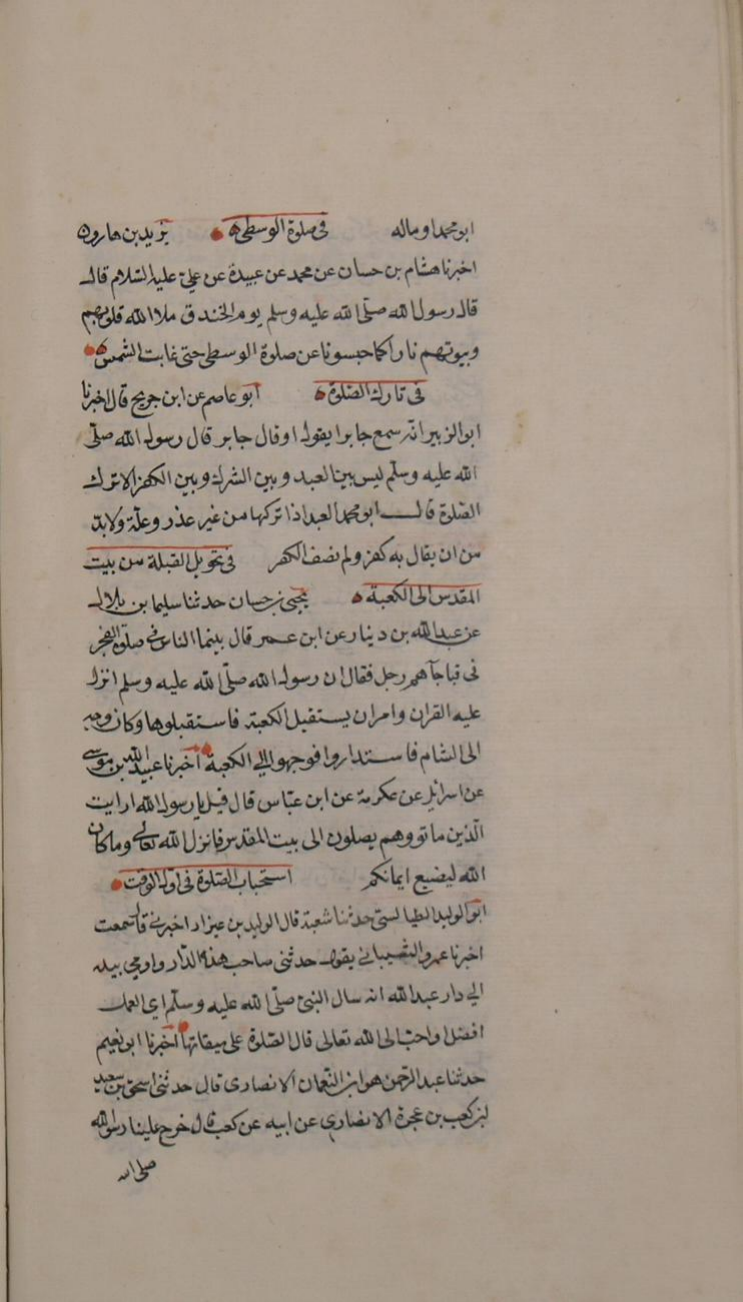 ابو محمد او ماله في صلوة الوسطى يزيد بن هارون
اخبرنا هشام بن حسان عن محمد عن عبيدة عن علي عليه السلام قال
قال رسول الله صلى الله عليه وسلم يوم الخندق ملأ الله قلوبهم
وبيوتهم نارا كما حبسونا عن صلوة الوسطى حتى غابت الشمس
في تارك الصلوة ابو عاصم عن ابن جريج قال اخبرنا
ابو الزبير انه سمع جابرا يقول او قال جابر قال رسول الله صلى
الله عليه وسلم ليس بين العبد وبين الشرك وبين الكفر الا ترك
الصلوة قال ابو محمد العبد اذا تركها من غير عذر وعلة ولا بد
من ان يقال به كفر ولم نصف الكفر في تحويل القبلة من بيت
المقدس الى الكعبة يحيى بن حسان حدثنا سليمان بن بلال
عن عبد الله بن دينار عن ابن عمر قال بينما الناس في صلوة الفجر
في قبا جآءهم رجل فقال ان رسول الله صلى الله عليه وسلم انزل
عليه القران وامر ان يستقبل الكعبة فاستقبلوها وكان وجه
الى الشام فاستداروا فوجهوا الي الكعبة اخبرنا عبيد الله بن موسى
عن اسرائل عن عكرمة عن ابن عباس قال قيل يا رسول الله ارايت
الذين ماتو وهم يصلون الى بيت المقدس فانزل الله تعالى وما كان
الله ليضيع ايمانكم استحباب الصلوة في اول الوقت
ابو الوليد الطيالسي حدثنا شعبة قال الوليد بن عيزار اخبرني قال سمعت
اخبرنا عمرو الشيباني يقول حدثني صاحب هذه الدار واومي بيده
الي دار عبد الله انه سال النبي صلى الله عليه وسلم اي العمل
افضل او احب الى الله تعالى قال الصلوة على ميقاتها اخبرنا ابو نعيم
حدثنا عبد الرحمن هو ابن النعمان الانصارى قال حدثني اسحق بن سعيد
ابن كعب بن عجرة الانصاري عن ابيه عن كعب قال خرج علينا رسول الله
صلى الله